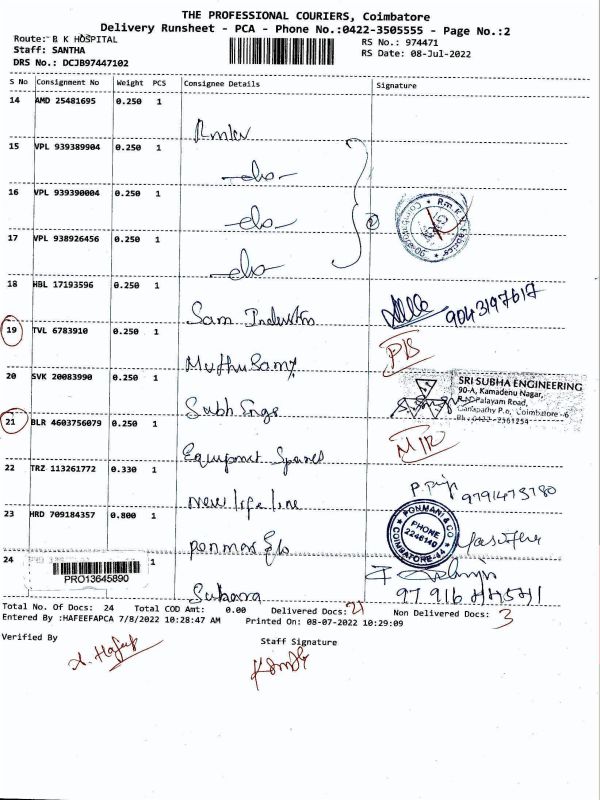 THE PROFESSIONAL COURIERS, Coimbatore
Delivery Runsheet - PCA - Phone No.:0422-3505555 - Page No.:2
Route: B K HOSPITAL
RS No.: 974471
Staff: SANTHA
RS Date: 08-Jul-2022
DRS No.: DCJB97447102
S No Consignment No Weight PCS Consignee Details Signature
14 AMD 25481695 0.250 1
Rmkv
15 VPL 939389904 0.250 1
-do-
16 VPL 939390004 0.250 1
-do-
17 VPL 938926456 0.250 1
-do-
18 HBL 17193596 0.250 1
Sam Industries 9043197617
19 TVL 6783910 0.250 1
Muthusamy
20 SVK 20083990 0.250 1
SRI SUBHA ENGINEERING
90-A, Kamadenu Nagar,
Palayam Road,
Ganapathy P.o, Coimbatore -6
Ph: 0422-2561254
Subh Engg
21 BLR 4603756079 0.250 1
Equipmet Spares
22 TRZ 113261772 0.330 1
New life line 9791473780
23 HRD 709184357 0.800 1
PONMANI & CO
PHONE
2246140
COIMBATORE-44
24 1
PRO13645890
Total No. Of Docs: 24 Total COD Amt: 0.00 Delivered Docs: 21 Non Delivered Docs: 3
Entered By :HAFEEFAPCA 7/8/2022 10:28:47 AM Printed On: 08-07-2022 10:29:09
Verified By Staff Signature